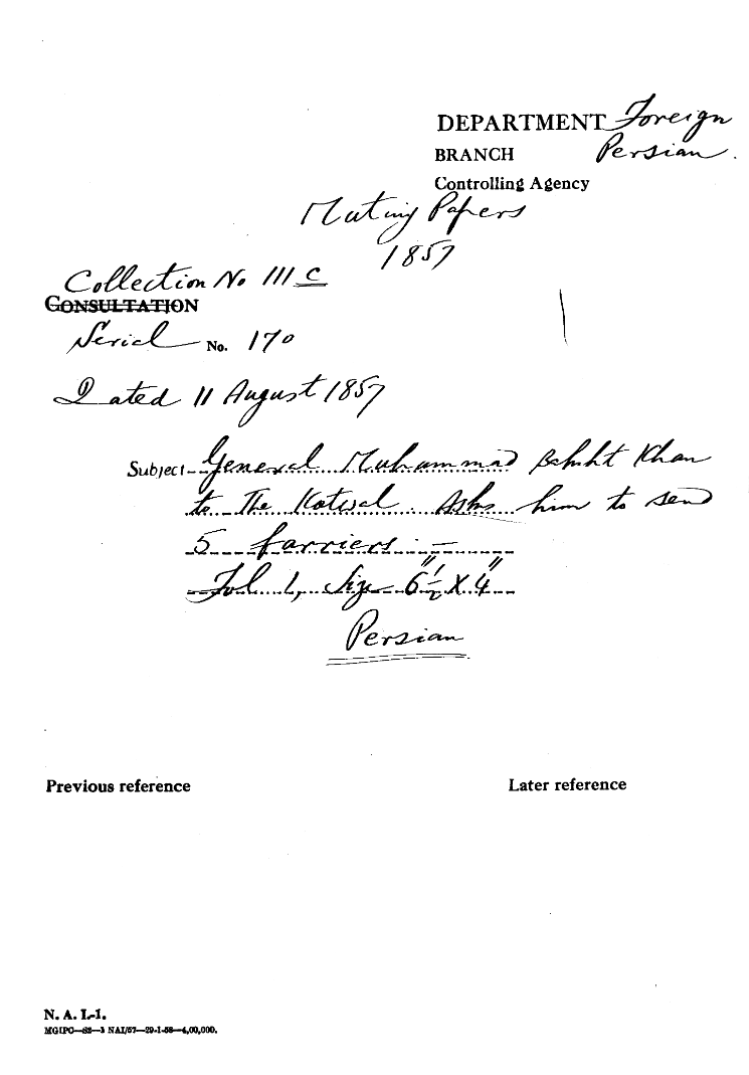 DEPARTMENT Foreign
BRANCH Persian.
Controlling Agency
Mutiny Papers
1857
Collection No 111 C
CONSULTATION
Serial No. 170
Dated 11 August 1857
Subject General Muhammad Bakht Khan
to The Kotwal. Asks him to send
5 farriers. —
Fol. 1, Size 6½" X 4"
Persian
Previous reference
Later reference
N. A. I.-1.
MGIPC—S2—3 NAI/57—29-1-58—4,00,000.